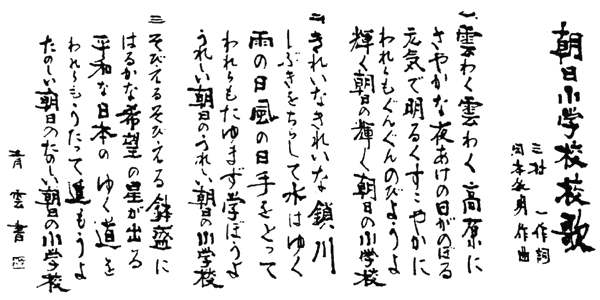 朝日小学校校歌
三村 一 作詞
岡本敏明 作曲
一、雲わく雲わく 高原に
さやかな夜あけの日がのぼる
元気で明るくすこやかに
われらもぐんぐんのびようよ
輝く朝日の輝く朝日の小学校
二、きれいなきれいな 鎖川
しぶきをちらして水はゆく
雨の日風の日手をとって
われらもたゆまず学ぼうよ
うれしい朝日のうれしい朝日の小学校
三、そびえるそびえる 鉢盛に
はるかな希望の星が出る
平和な日本の ゆく道を
われらもうたって進もうよ
たのしい朝日のたのしい朝日の小学校
青雲書